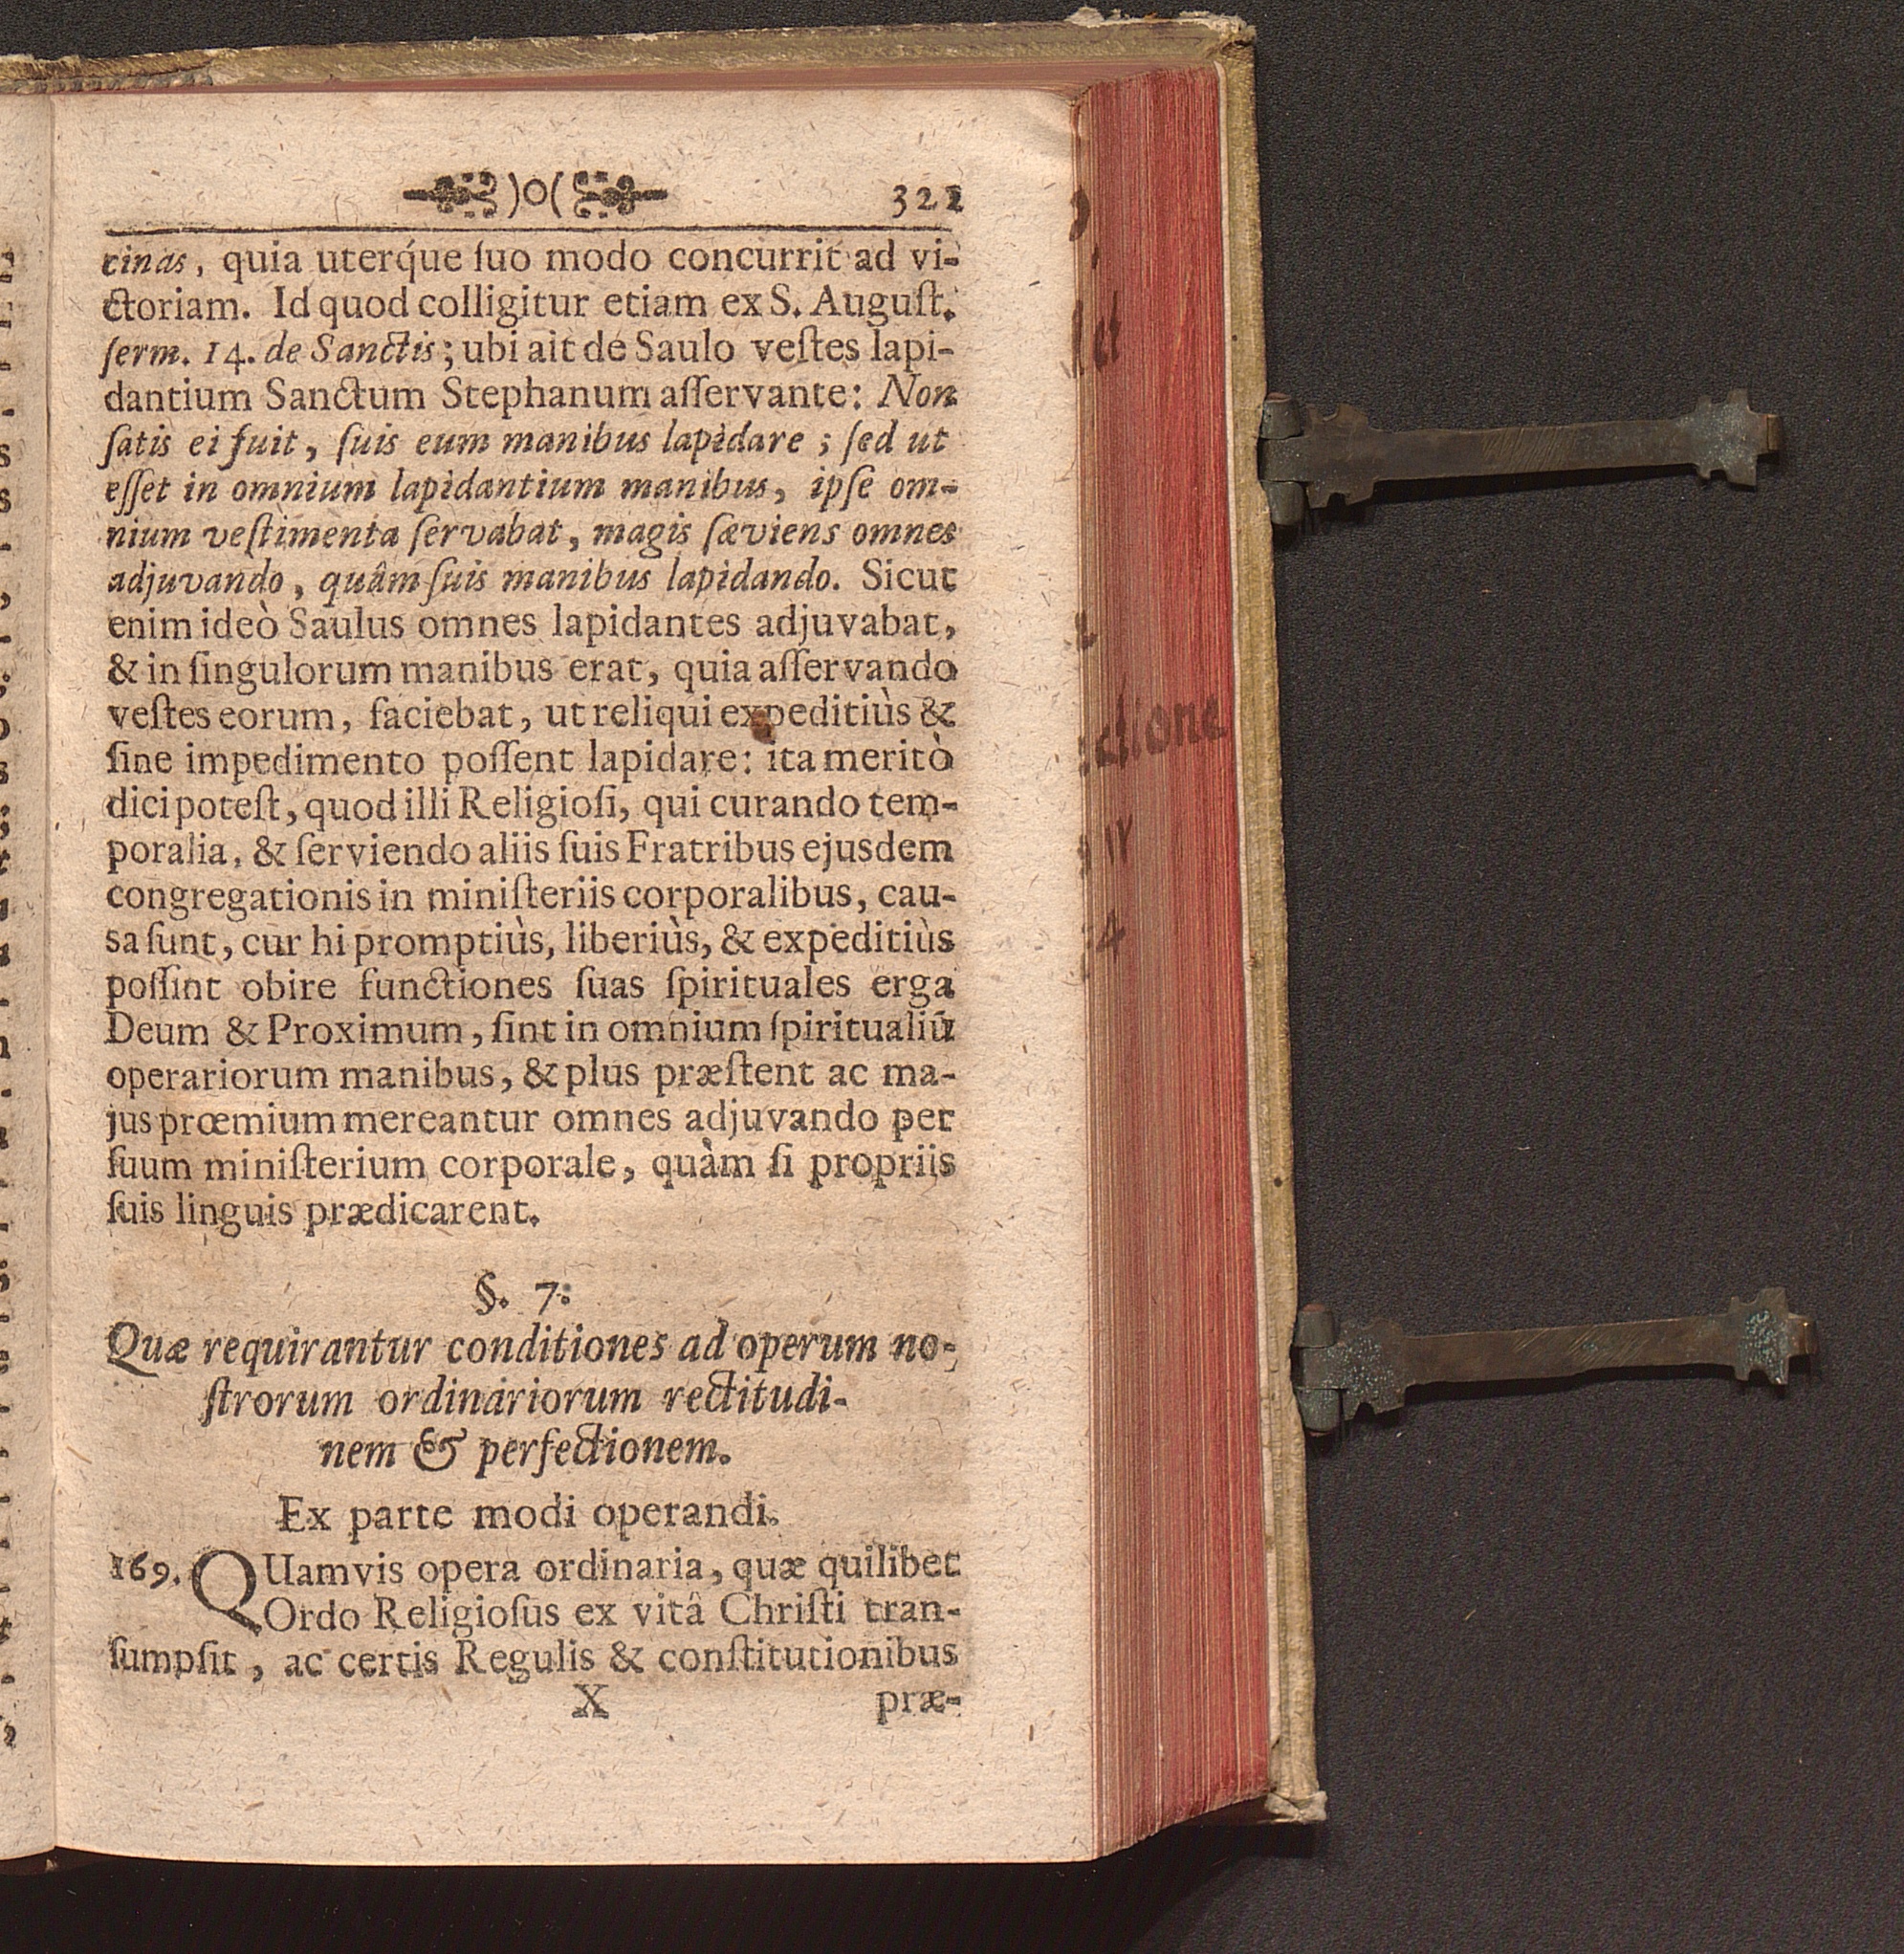 )o( 321
cinas, quia uterq́ue ſuo modo concurrit ad vi-
ctoriam. Id quod colligitur etiam ex S. Auguſt.
ſerm. 14. de Sanctis; ubi ait de Saulo veſtes lapi-
dantium Sanctum Stephanum aſſervante: Non
ſatis ei fuit, ſuis eum manibus lapidare; ſed ut
eſſet in omnium lapidantium manibus, ipſe om-
nium veſtimenta ſervabat, magis ſæviens omnes
adjuvando, quâm ſuis manibus lapidando. Sicut
enim ideò Saulus omnes lapidantes adjuvabat,
& in ſingulorum manibus erat, quia aſſervando
veſtes eorum, faciebat, ut reliqui expeditiùs &
ſine impedimento poſſent lapidare: ita meritò
dici poteſt, quod illi Religioſi, qui curando tem-
poralia, & ſerviendo aliis ſuis Fratribus ejusdem
congregationis in miniſteriis corporalibus, cau-
sa ſunt, cur hi promptiùs, liberiùs, & expeditiùs
poſſint obire functiones ſuas ſpirituales erga
Deum & Proximum, ſint in omnium ſpiritualiū
operariorum manibus, & plus præſtent ac ma-
jus prœmium mereantur omnes adjuvando per
ſuum miniſterium corporale, quàm ſi propriis
ſuis linguis prædicarent.
§. 7.
Quæ requirantur conditiones ad operum no-
ſtrorum ordinariorum rectitudi-
nem & perfectionem.
Ex parte modi operandi.
169. QUamvis opera ordinaria, quæ quilibet
Ordo Religioſus ex vitâ Chriſti tran-
ſumpſit, ac certis Regulis & conſtitutionibus
X præ-